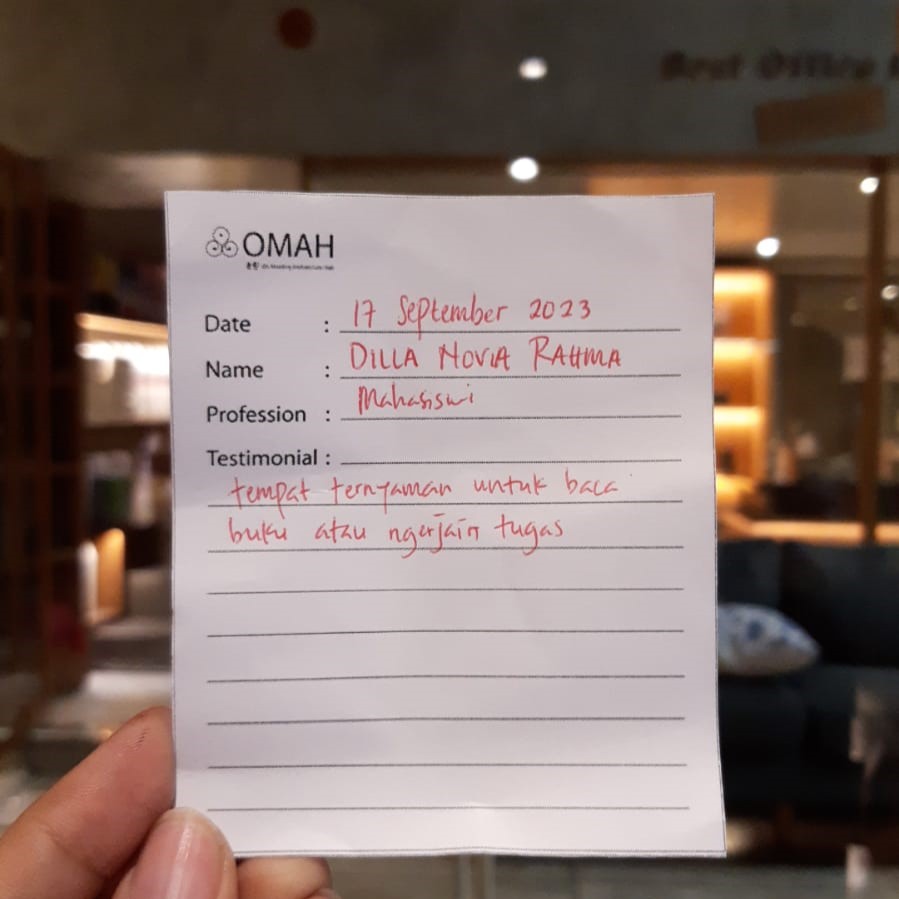 OMAH
Date : 17 September 2023
Name : DILLA NOVIA RAHMA
Profession : Mahasiswi
Testimonial :
tempat ternyaman untuk baca
buku atau ngerjain tugas
Best Office